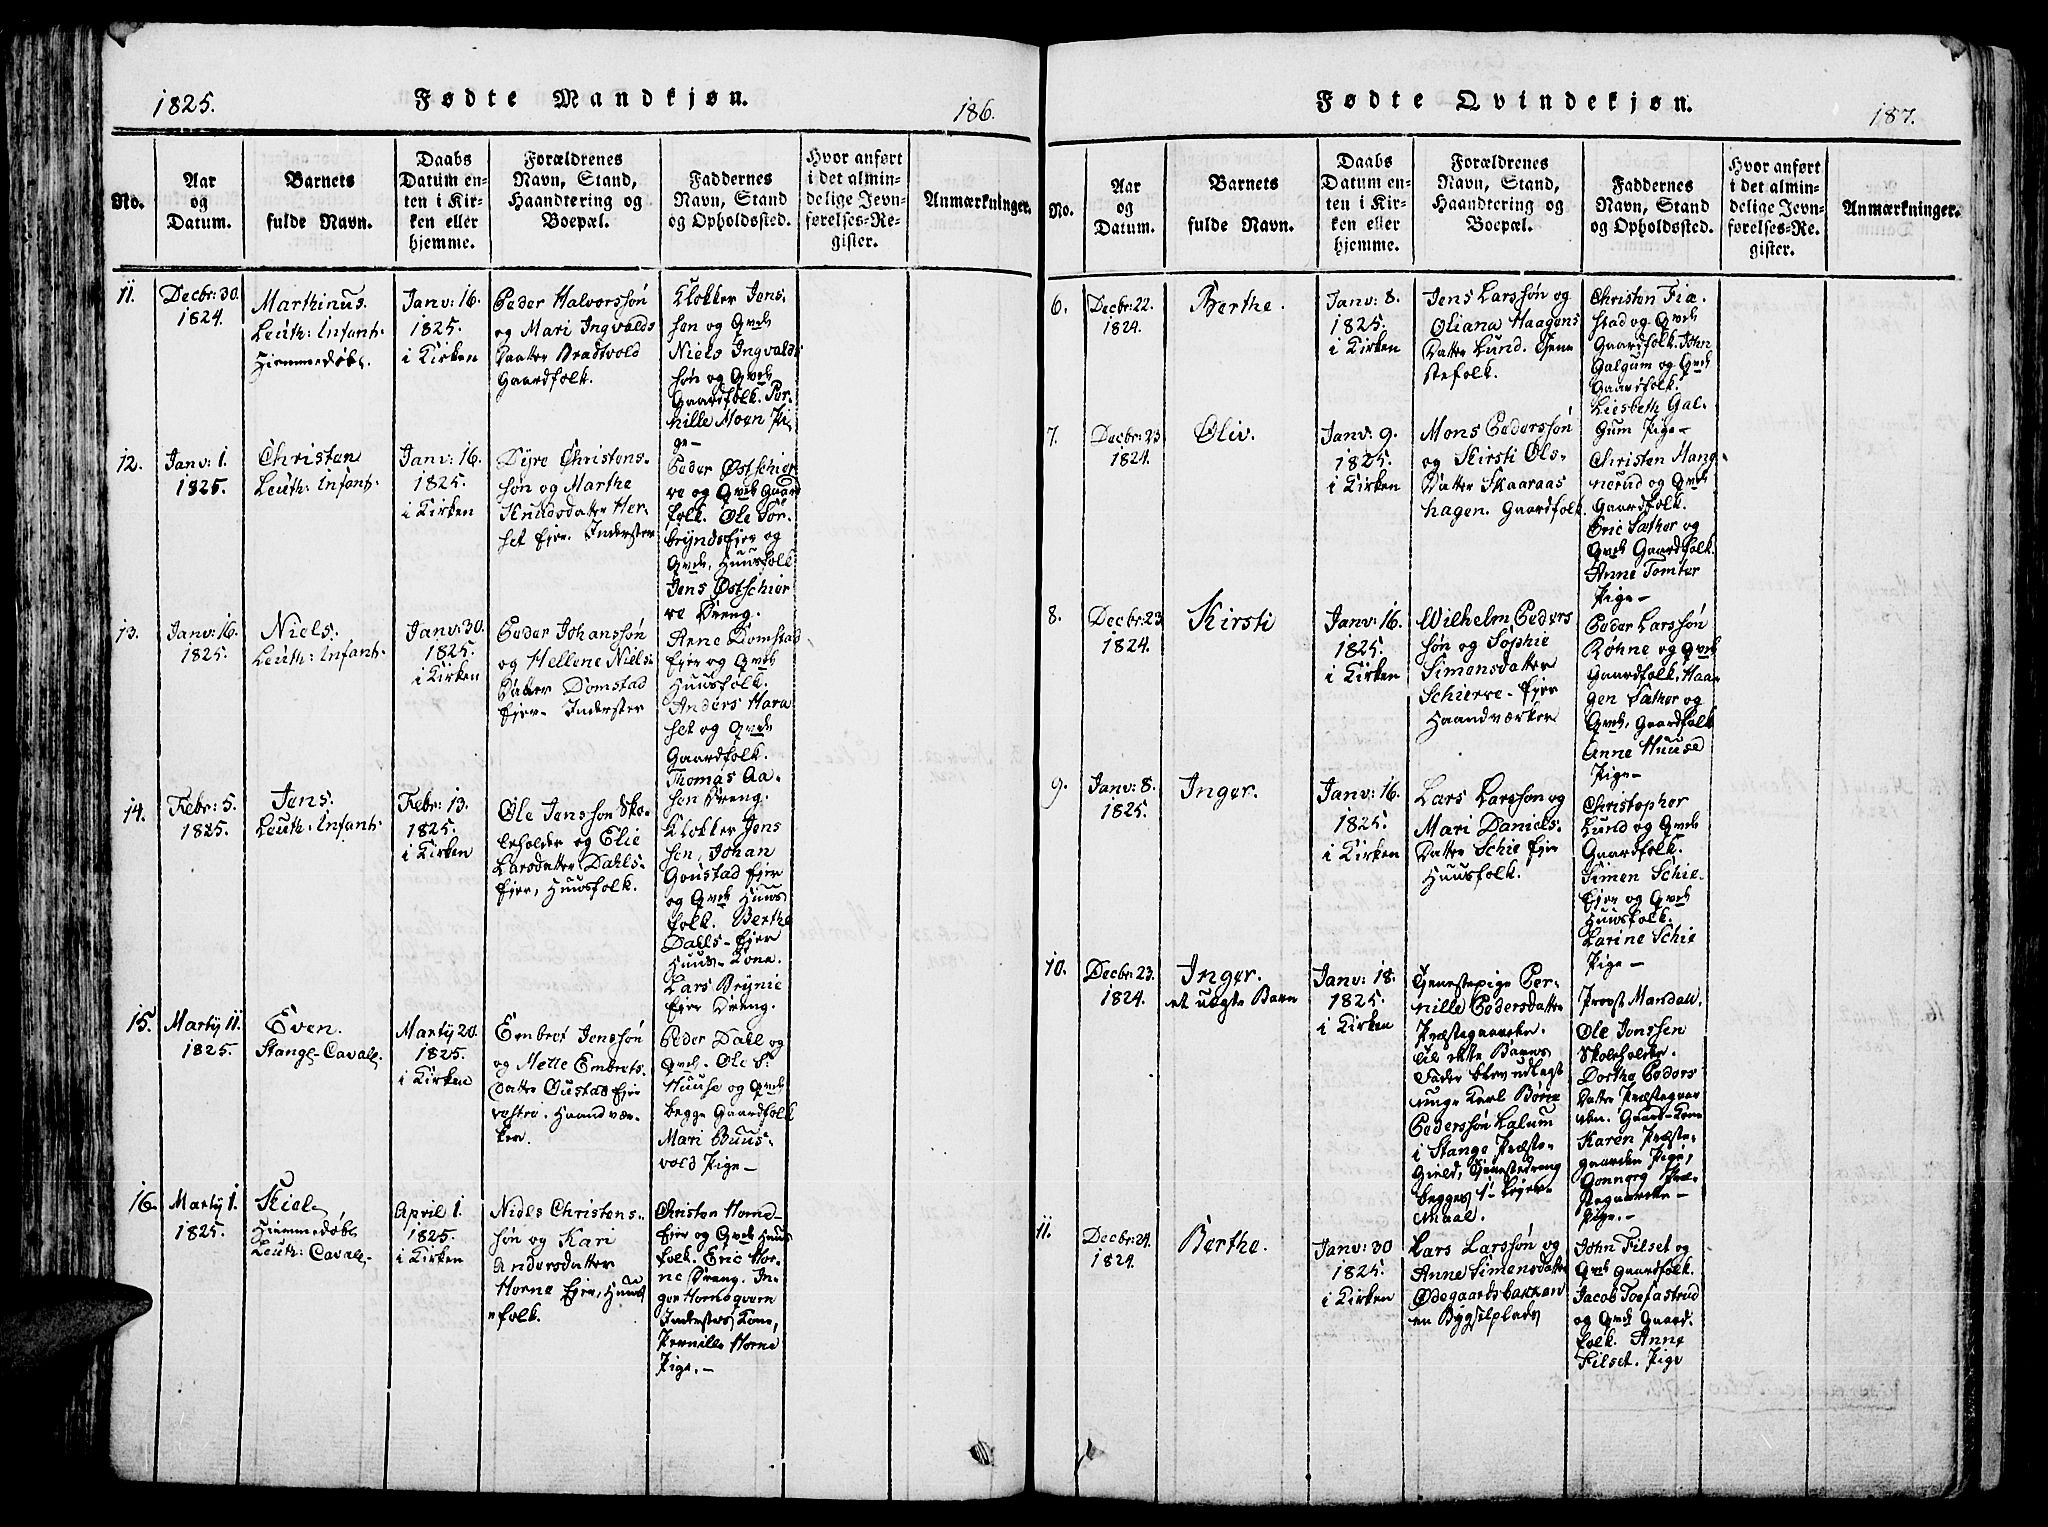 1825.
Fødte Mandkjøn.
186.
No.
Aar
og
Datum.
Barnets
fulde Navn.
Daabs
Datum en-
ten i Kir-
ken eller
hjemme.
Forældrenes
Navn, Stand,
Haandtering og
Boepæl.
Faddernes
Navn, Stand
og Opholdssted.
Hvor anført
i det almin-
delige Jevn-
førelses-Re-
gister.
Anmærkninger.
11.
Decbr: 30.
1824.
Marthinus.
Leuth: Infant:
Hjemmedøbt.
Janv: 16.
1825.
i Kirken
Peder Halvorssøn
og Mari Ingvalds
Datter Bradtvold
Gaardfolk.
Klokker Jens
sen og Qvde
Niels Ingvalds
søn og Qvde
Gaardfolk. Per-
nille Moen Pi-
ge-
12.
Janv: 1.
1825.
Christen
Leuth: Infant:
Janv: 16.
1825.
i Kirken
Dyre Christens-
søn og Marthe
Knudsdatter Her-
set Ejer. Inderster
Peder Østschier
re og Qvde Gaard
folk. Ole Sør-
bryndsejer og
Qvde, Huusfolk
Jens Østschier
re Dreng.
13.
Janv: 16.
1825.
Niels.
Leuth: Infant:
Janv: 30.
1825.
i Kirken
Peder Johanssøn
og Hellene Niels-
Datter Domstad
Ejer. Inderster
Arne Domstad
Ejer og Qvde
Huusfolk.
Anders Hara
set og Qvde
Gaardfolk.
Thomas Aa-
sen Dreng.
14.
Febr: 5.
1825.
Jens.
Leuth: Infant:
Febr: 13.
1825.
i Kirken
Ole Jenssøn Sko-
leholder og Elie
Larsdatter Dahls-
Ejer, Huusfolk.
Klokker Jens
sen, Johan
Goustad Ejer
og Qvde Huus
folk. Berthe
Dahls-Ejer
Huus-Kone.
Lars Brynie
Ejer Dreng.
15.
Martÿ 11.
1825.
Even.
Stange-Caval:
Martÿ 20.
1825.
i Kirken
Embret Jenssøn
og Mette Embrets-
Datter Oustad Ejer
vestre. Haandvær-
ker.
Peder Dahl og
Qvde. Ole S.
Huuse og Qvde
begge Gaardfolk
Mari Buus-
vold Pige-
16.
Martÿ 1.
1825.
Kiel
Hjemmedøbt
Leuth: Caval-
April 1.
1825.
i Kirken
Niels Christens-
søn og Kari
Andersdatter
Horne Ejer, Huus
folk.
Christen Horne-
Ejer og Qvde Huus
folk. Eric Hor-
ne Dreng. In-
ger Horneqvern
Inderstes Kone,
Pernille Horne
Pige.-
Fødte Qvindekjøn.
187.
No.
Aar
og
Datum.
Barnets
fulde Navn.
Daabs
Datum en-
ten i Kir-
ken eller
hjemme.
Forældrenes
Navn, Stand,
Haandtering og
Boepæl.
Faddernes
Navn, Stand
og Opholdssted.
Hvor anført
i det almin-
delige Jevn-
førelses-Re-
gister.
Anmærkninger.
6.
Decbr: 22.
1824.
Berthe.
Janv: 8.
1825.
i Kirken
Jens Larssøn og
Oliana Haagens
Datter Lund. Tjene
stefolk.
Christen Fia-
stad og Qvde
Gaardfolk. John
Galgum og Qvde
Gaardfolk.
Liesbeth Gal-
gum Pige-
7.
Decbr: 23
1824.
Oliv.
Janv: 9.
1825.
i Kirken
Mons Pederssøn
og Kirsti Ols-
Datter Skaaraas
hagen. Gaardfolk.
Christen Mang-
nerud og Qvde
Gaardfolk.
Eric Sæther og
Qvde Gaardfolk.
Anne Tomter
Pige-
8.
Decbr: 23
1824.
Kirsti
Janv: 16.
1825.
i Kirken
Wilhelm Peders
søn og Sophie
Simensdatter
Schierre-Ejer
Haandværker
Peder Larssøn
Røhne og Qvde
Gaardfolk. Haa-
gen Sæther og
Qvde, Gaardfolk
Anne Huuse
Pige-
9.
Janv: 8.
1825.
Inger.
Janv: 16.
1825.
i Kirken
Lars Larssøn og
Mari Daniels-
Datter Schie Ejer
Huusfolk.
Christopher
Lund og Qvde
Gaardfolk.
Simen Schie-
Ejer og Qvde
Huusfolk.
Larine Schie
Pige-
10.
Decbr: 23.
1824.
Inger.
et uægte Barn
Janv: 18.
1825.
i Kirken
Tjenestepige Per-
nille Pedersdatter
Præstegaarden.
til dette Barns
Fader blev udlagt
unge Karl Børre
Pederssøn Lalum
i Stange Præste-
Gield, Tjenestedreng
begges 1ste Lejer-
maal.
Provst Mandall.
Ole Jenssen
Skoleholder.
Dorthe Peders
Datter Præstegaar
den. Gaard-Kone
Karen Præste-
gaarden Pige,
Gonnerg Præ-
stegaarden-
Pige.-
11.
Decbr: 24.
1824.
Berthe.
Janv: 30
1825.
i Kirken
Lars Larssøn og
Anne Simensdatter
Ødegaardsbakken
en Bygselplads
John Filset og
Qvde Gaardfolk.
Jacob Toefastrud
og Qvde Gaard-
folk. Anne
Filset. Pige